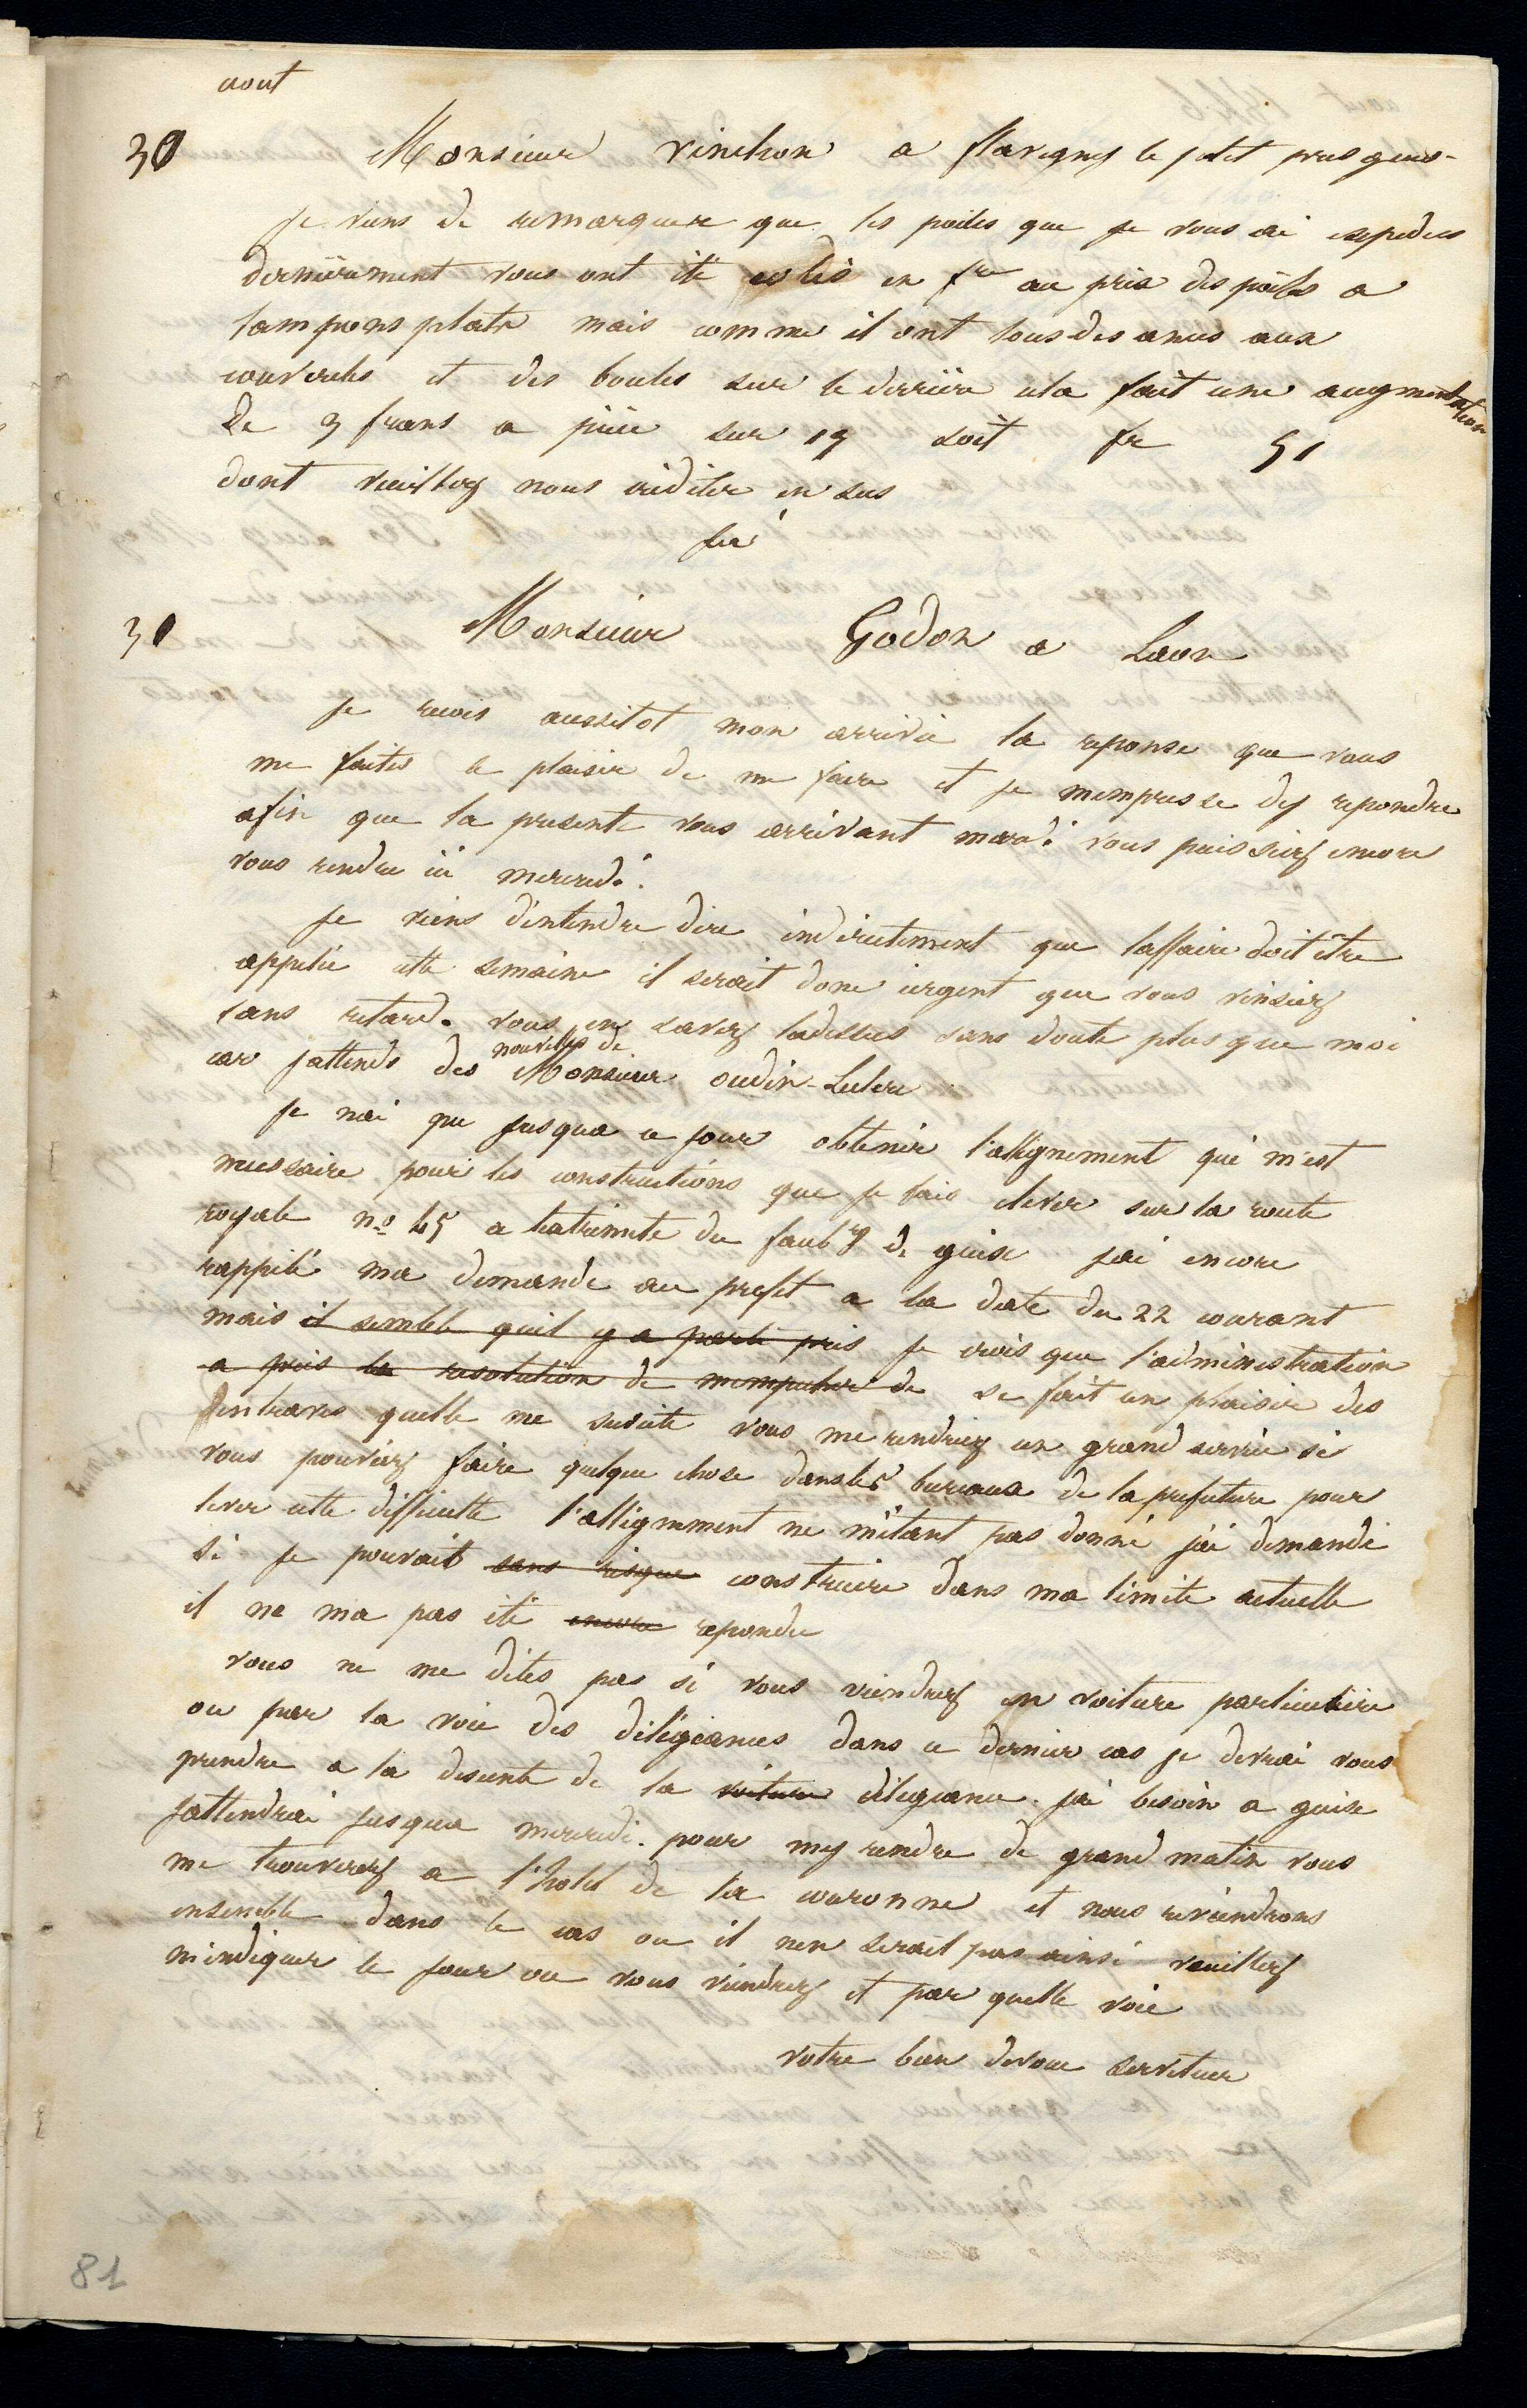 aout
30 Monsieur vinchon a flavigny le petit pres guise
je viens de remarquer que les poiles que je vous ai expediés
dernièrement vous ont été cotés en fre au prix des poiles a
tampons plats mais comme il ont tous des anses aux
couvercles et des boules sur le derrière cela fait une augmentation
de 3 francs a pièce sur 17 soit fr 51
dont veuillez nous créditer en sus
30 Monsieur Godon a Laon
je recois aussitot mon arrivée la reponse que vous
me faites le plaisir de me faire et je mempresse dy repondre
afin que la presente vous arrivant mardi vous puissiez encore
vous rendre ici mercredi.
je viens d'entendre dire indirectement que laffaire doit être
appelée cette semaine il serait donc urgent que vous vinsiez
sans retard. vous en savez ladessus sans doute plus que moi
car jattends des nouvelles de Monsieur oudin-Leclere
je nai pu jusqua ce jour obtenir l'allignement qui m'est
necessaire pour les constructions que je fais élever sur la route
royale no 45 a lextremite du faubg de guise jai encore
rappelé ma demande au prefet a la date du 22 courant
mais il semble quil y a parti pris je crois que l'administration
a pris la resolution de mempecher de se fait un plaisir des
entraves quelle me suscite vous me rendriez un grand service si
vous pouviez faire quelque chose dans les bureaux de la prefecture pour
lever cette difficulté l'allignement ne m'etant pas donné j'ai demandé
si je pouvait sans risque construire dans ma limite actuelle
il ne ma pas été encore repondu
vous ne me dites pas si vous viendrez en voiture particulière
ou par la voie des diligeances dans ce dernier cas je devrai vous
prendre a la descente de la voiture diligeance. jai besoin a guise
jattendrai jusqua mercredi. pour my rendre de grand matin vous
me trouverez a l'hotel de la couronne et nous reviendrons
ensemble dans le cas ou il nen serait pas ainsi veuillez
m'indiquer le jour ou vous viendrez et par quelle voie
votre bien devoué serviteur
81